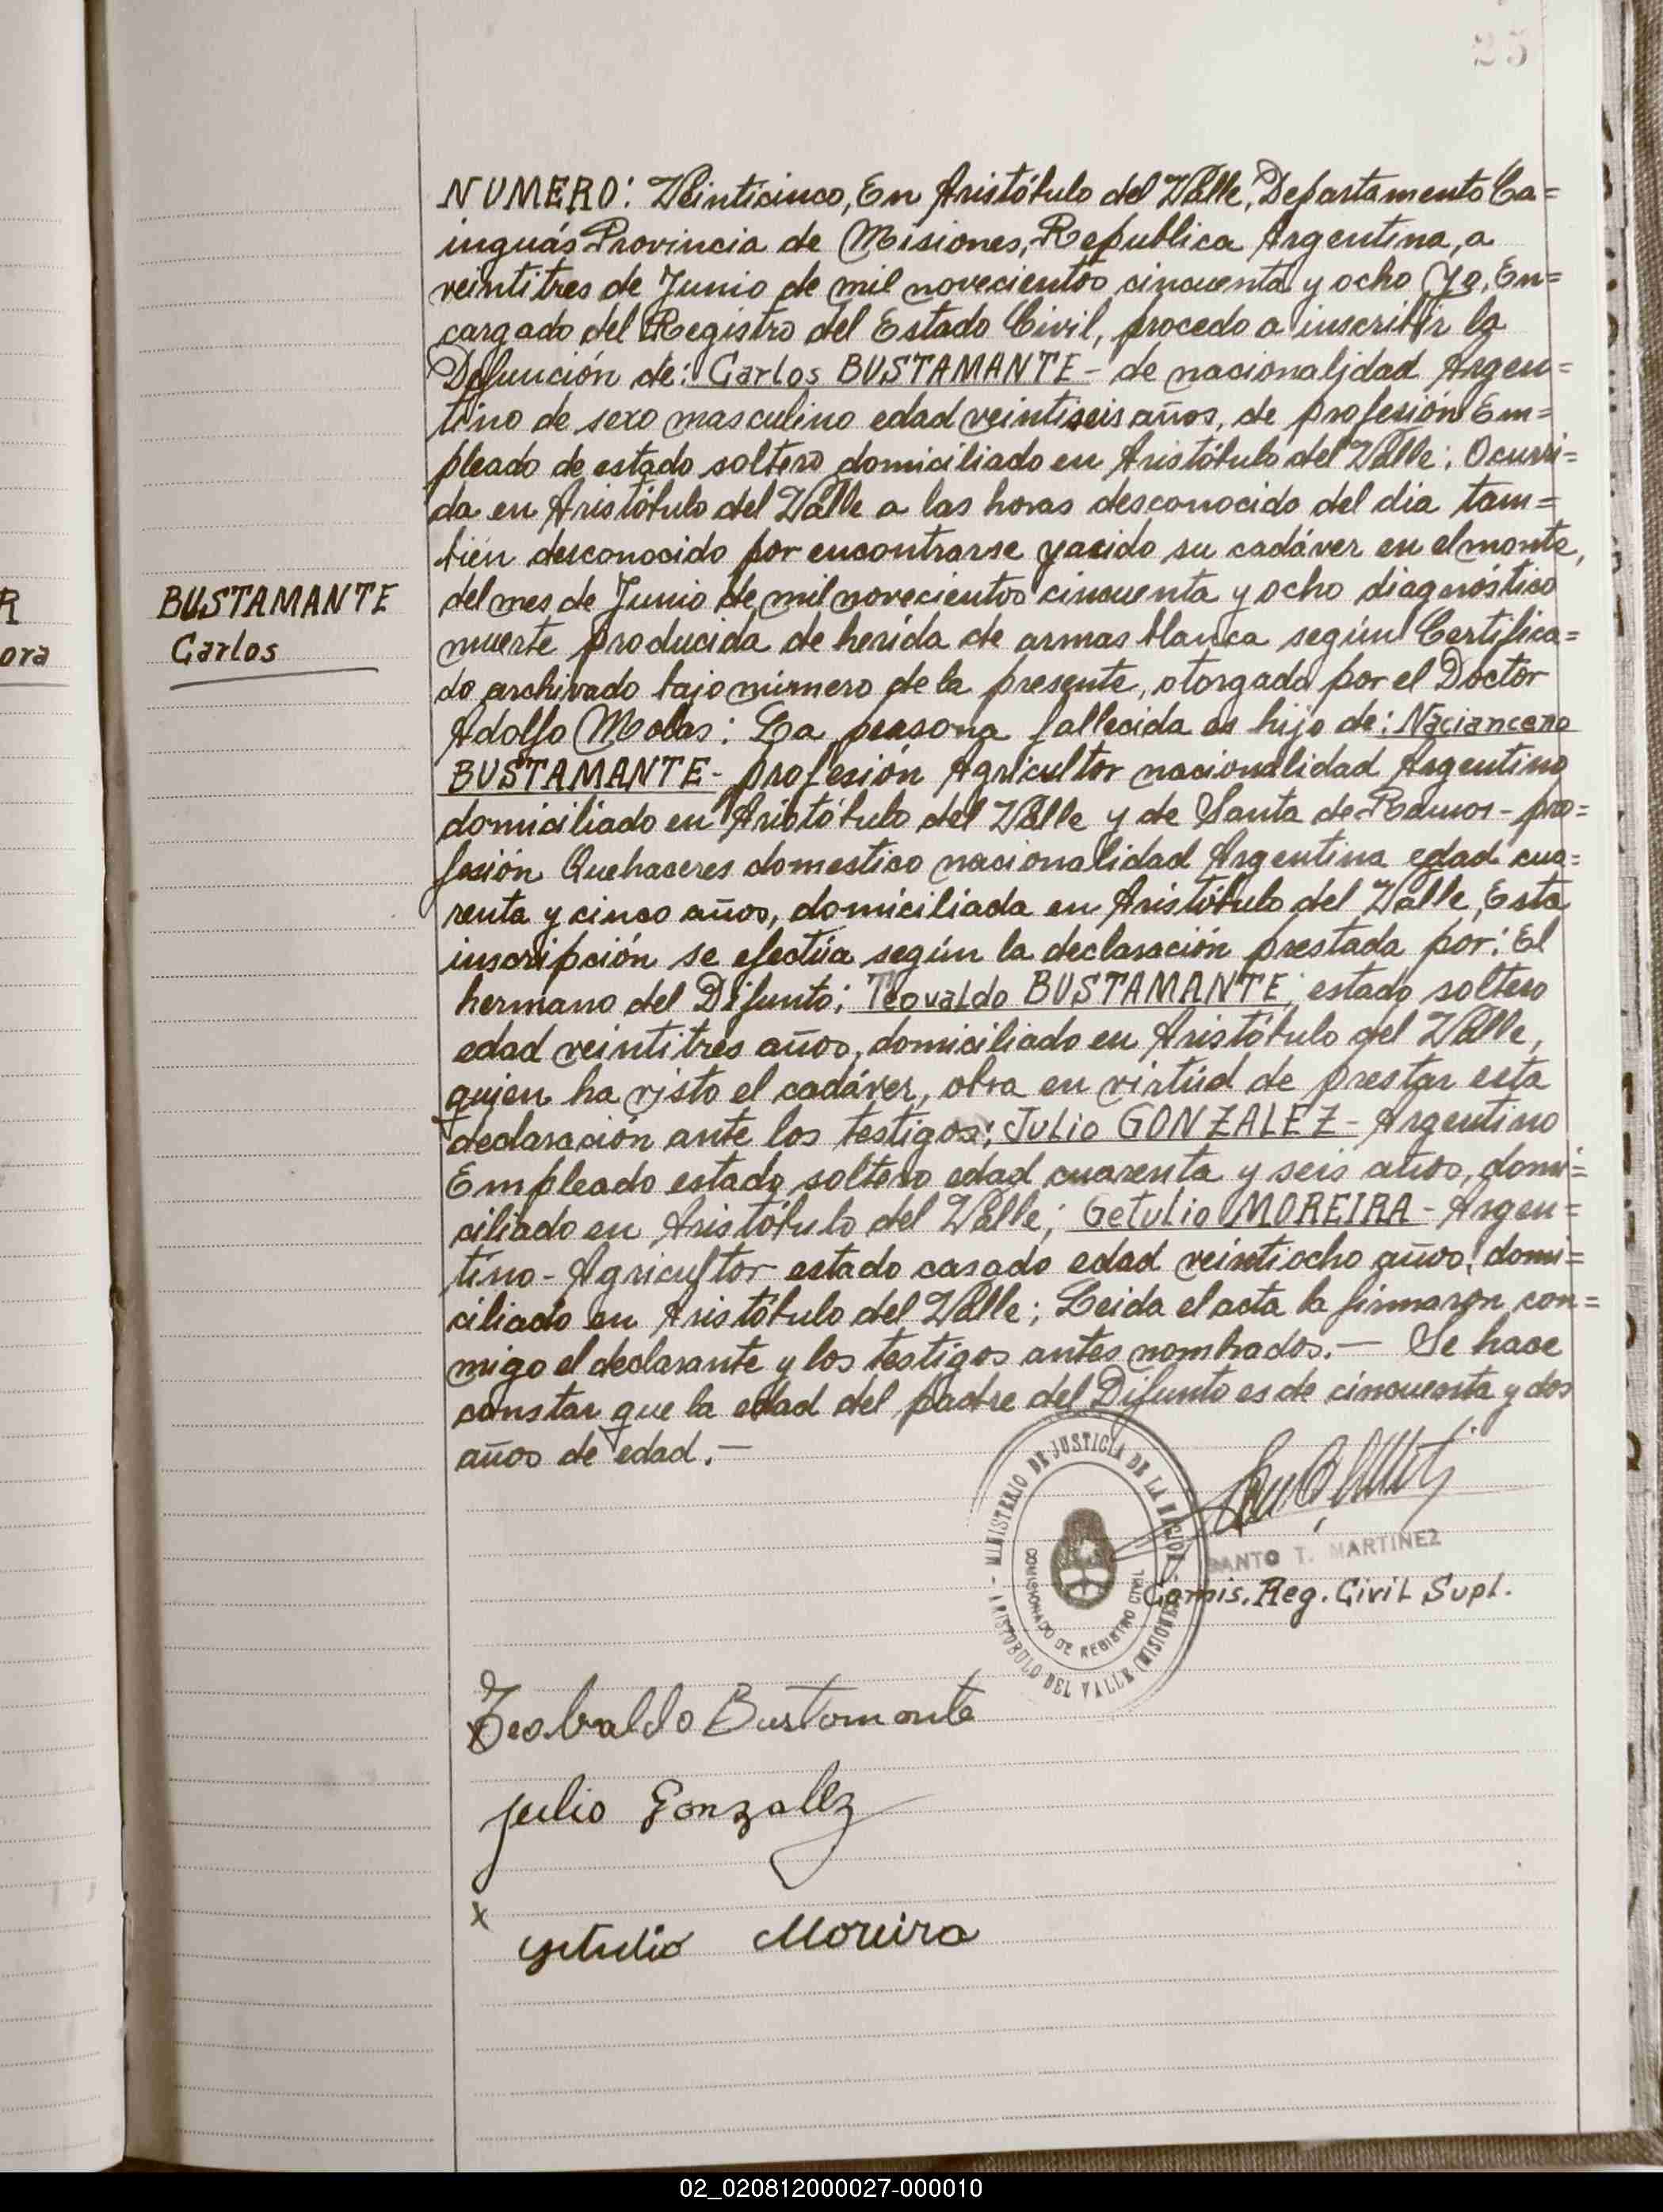 25
NUMERO: Veinticinco, En Aristóbulo del Valle, Departamento Ca=
inguás Provincia de Misiones, Republica Argentina, a
veintitres de Junio de mil novecientos cincuenta y ocho Yo, En=
cargado del Registro del Estado Civil, procedo a inscribir la
Defunción de: Carlos BUSTAMANTE - de nacionalidad Argen=
tino de sexo masculino edad veintiseis años, de profesión Em=
pleado de estado soltero domiciliado en Aristóbulo del Valle; Ocurri=
da en Aristóbulo del Valle a las horas desconocido del dia tam=
bién desconocido por encontrarse yacido su cadáver en el monte,
del mes de Junio de mil novecientos cincuenta y ocho diagnóstico
muerte producida de herida de armas blanca según Certifica=
do archivado bajo número de la presente, otorgado por el Doctor
Adolfo Molas: La persona fallecida es hijo de: Nacianceno
BUSTAMANTE - profesión Agricultor nacionalidad Argentino
domiciliado en Aristóbulo del Valle y de Santa de Ramos - pro=
fesión Quehaceres domestico nacionalidad Argentina edad cua=
renta y cinco años, domiciliada en Aristóbulo del Valle, Esta
inscripción se efectúa según la declaración prestada por: El
hermano del Difunto; Teovaldo BUSTAMANTE; estado soltero
edad veintitres años, domiciliado en Aristóbulo del Valle,
quien ha visto el cadáver, obra en virtúd de prestar esta
declaración ante los testigos; Julio GONZALEZ - Argentino
Empleado estado soltero edad cuarenta y seis años, domi=
ciliado en Aristóbulo del Valle; Getulio MOREIRA - Argen=
tino - Agricultor estado casado edad veintiocho años, domi=
ciliado en Aristóbulo del Valle; Leida el acta la firmaron con=
migo el declarante y los testigos antes nombrados. — Se hace
constar que la edad del padre del Difunto es de cincuenta y dos
años de edad. —
BUSTAMANTE
Carlos
R
ora
- MINISTERIO DE JUSTICIA DE LA NACION -
COMISIONADO DE REGISTRO CIVIL
ARISTOBULO DEL VALLE (MISIONES)
SANTO T. MARTINEZ
Comis. Reg. Civil Supl.
Teobaldo Bustamante
Julio Gonzalez
x
Getulio Moreira
02_020812000027-000010